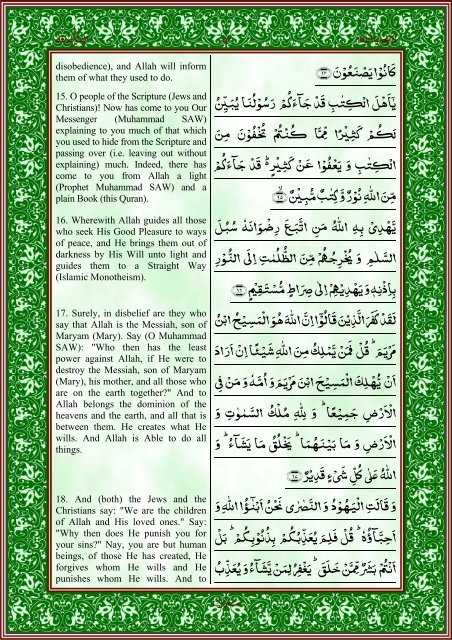 disobedience), and Allah will inform
them of what they used to do.
15. O people of the Scripture (Jews and
Christians)! Now has come to you Our
Messenger (Muhammad SAW)
explaining to you much of that which
you used to hide from the Scripture and
passing over (i.e. leaving out without
explaining) much. Indeed, there has
come to you from Allah a light
(Prophet Muhammad SAW) and a
plain Book (this Quran).
16. Wherewith Allah guides all those
who seek His Good Pleasure to ways
of peace, and He brings them out of
darkness by His Will unto light and
guides them to a Straight Way
(Islamic Monotheism).
17. Surely, in disbelief are they who
say that Allah is the Messiah, son of
Maryam (Mary). Say (O Muhammad
SAW): "Who then has the least
power against Allah, if He were to
destroy the Messiah, son of Maryam
(Mary), his mother, and all those who
are on the earth together?" And to
Allah belongs the dominion of the
heavens and the earth, and all that is
between them. He creates what He
wills. And Allah is Able to do all
things.
18. And (both) the Jews and the
Christians say: "We are the children
of Allah and His loved ones." Say:
"Why then does He punish you for
your sins?" Nay, you are but human
beings, of those He has created, He
forgives whom He wills and He
punishes whom He wills. And to
كَانُوْا يَصْنَعُوْنَ ﴿۱۴﴾
يٰۤاَهْلَ الْكِتٰبِ قَدْ جَآءَكُمْ رَسُوْلُنَا يُبَيِّنُ
لَكُمْ كَثِيْرًا مِّمَّا كُنْتُمْ تُخْفُوْنَ مِنَ
الْكِتٰبِ وَ يَعْفُوْا عَنْ كَثِيْرٍ ؕ قَدْ جَآءَكُمْ
مِّنَ اللّٰهِ نُوْرٌ وَّ كِتٰبٌ مُّبِيْنٌ ﴿۱۵﴾
يَّهْدِيْ بِهِ اللّٰهُ مَنِ اتَّبَعَ رِضْوَانَهٗ سُبُلَ
السَّلٰمِ وَ يُخْرِجُهُمْ مِّنَ الظُّلُمٰتِ اِلَى النُّوْرِ
بِاِذْنِهٖ وَ يَهْدِيْهِمْ اِلٰى صِرَاطٍ مُّسْتَقِيْمٍ ﴿۱۶﴾
لَقَدْ كَفَرَ الَّذِيْنَ قَالُوْۤا اِنَّ اللّٰهَ هُوَ الْمَسِيْحُ ابْنُ
مَرْيَمَ ؕ قُلْ فَمَنْ يَّمْلِكُ مِنَ اللّٰهِ شَيْـًٔا اِنْ اَرَادَ
اَنْ يُّهْلِكَ الْمَسِيْحَ ابْنَ مَرْيَمَ وَ اُمَّهٗ وَ مَنْ فِي
الْاَرْضِ جَمِيْعًا ؕ وَ لِلّٰهِ مُلْكُ السَّمٰوٰتِ وَ
الْاَرْضِ وَ مَا بَيْنَهُمَا ؕ يَخْلُقُ مَا يَشَآءُ ؕ وَ
اللّٰهُ عَلٰى كُلِّ شَيْءٍ قَدِيْرٌ ﴿۱۷﴾
وَ قَالَتِ الْيَهُوْدُ وَ النَّصٰرٰى نَحْنُ اَبْنٰٓؤُا اللّٰهِ وَ
اَحِبَّآؤُهٗ ؕ قُلْ فَلِمَ يُعَذِّبُكُمْ بِذُنُوْبِكُمْ ؕ بَلْ
اَنْتُمْ بَشَرٌ مِّمَّنْ خَلَقَ ؕ يَغْفِرُ لِمَنْ يَّشَآءُ وَ يُعَذِّبُ